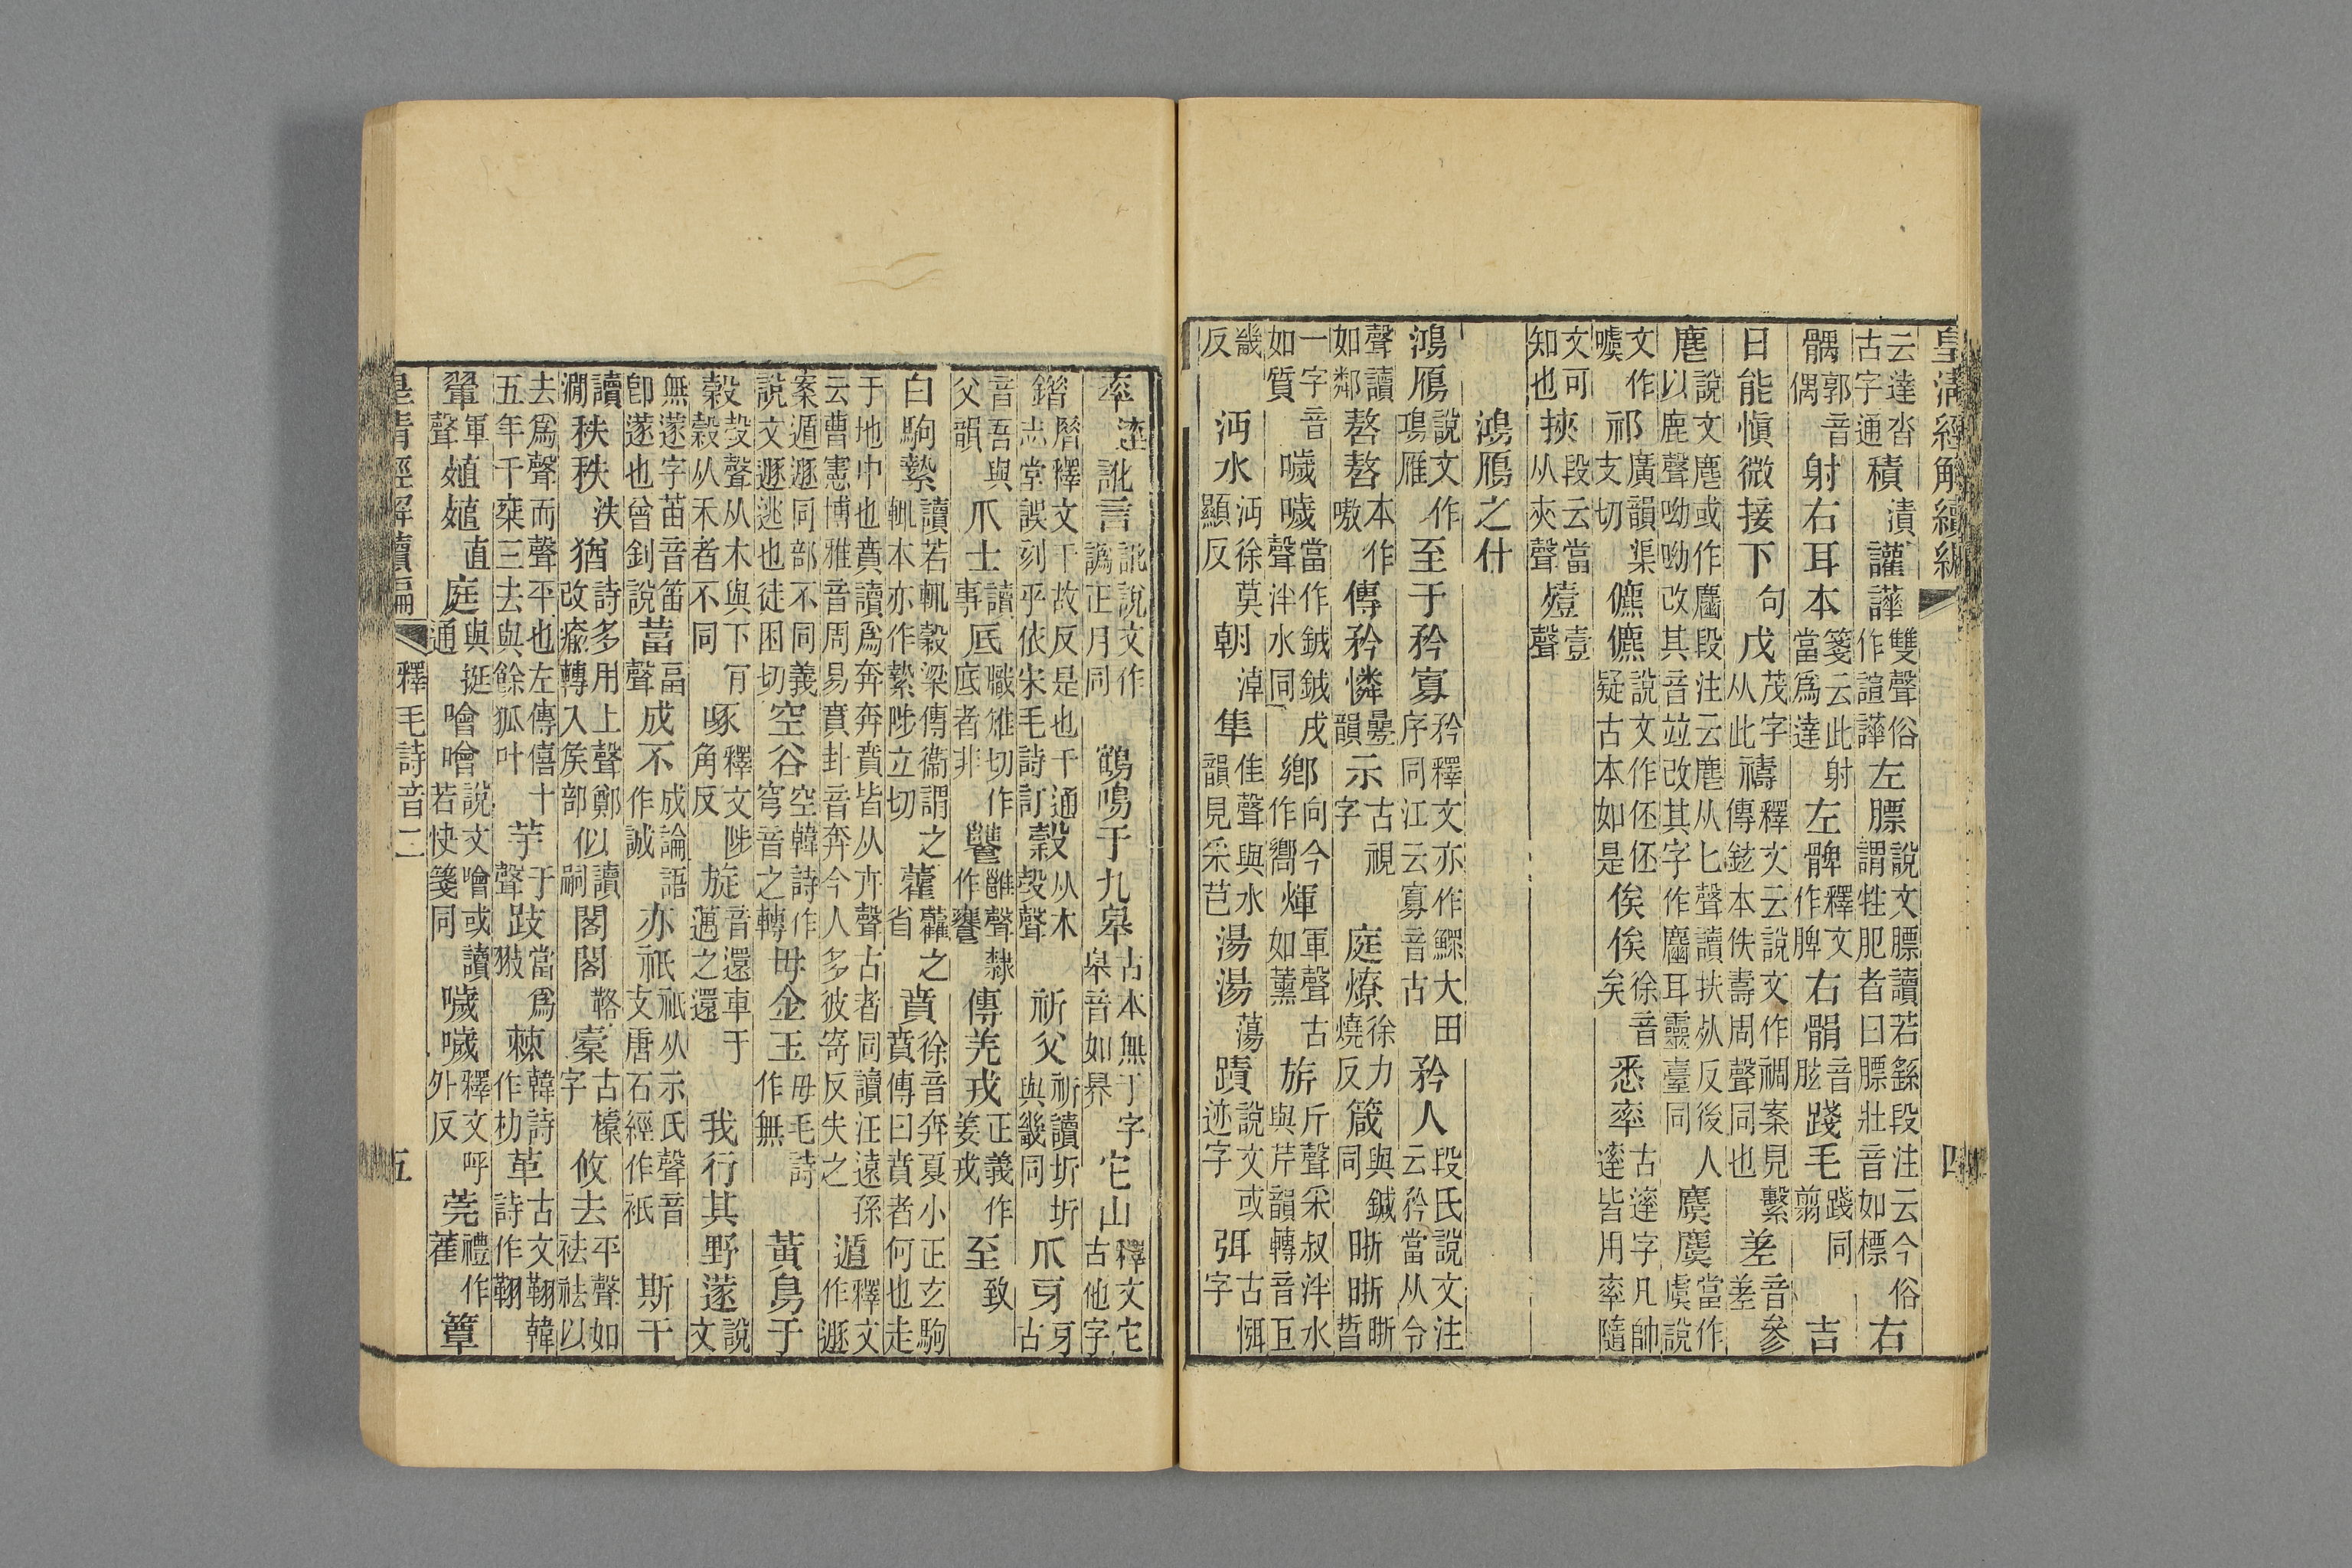 皇清經解續編　四
云達沓古字通積漬讙譁雙聲俗作諠譁左膘說文膘讀若繇段注云今俗謂牲肥者曰膘壯音如標右
髃郭音偶射右耳本箋云此射當爲達左髀釋文作脾右䯛音胘踐毛踐同翦吉
日能愼微接下句戊茂字从此禱釋文云說文作禂案見繫傳鉉本佚壽周聲同也差音參差
麀說文麀或作䴢段注云麀从匕聲讀扶反後人以鹿聲呦呦改其音竝改其字作耳靈臺同麌麌當作虞說
文作噳祁廣韻渠支切儦儦說文作伾伾疑古本如是俟俟徐音矣悉率古逹字凡帥逹皆用率隨
文可知也挾段云當从夾聲壹聲
鴻鴈之什
鴻鴈說文作鴻雁至于矜寡矜釋文亦作鰥大田序同江云寡音古矜人段氏說文注云矜當从令
聲讀如鄰嗸嗸本作嗷傳矜憐㬪韻示古視字庭燎徐力燒反箴與鍼同晣晣晣晢
一字音如質噦噦當作鉞鉞戌聲泮水同鄉向今作嚮煇軍聲古如薰旂斤聲采叔泮水與芹韻轉音互
畿反沔水沔徐莫顯反朝淖隼隹聲與水韻見采芑湯湯蕩蹟說文或迹字弭古字
率逹訛言訛說文作譌正月同鶴鳴于九皋古本無于字皋音如界它山釋文它古他字
釋文干故反是也千通志堂誤刻乎依宋毛詩訂穀从木㱿聲祈父祈讀圻圻與畿同爪牙牙古
音吾與父韻爪士讀事厎職雉切作底者非饔雝聲隸作饔傳羌戎正義作姜戎至致
白駒縶讀若輒穀梁傳衞謂之輒本亦作縶陟立切藿虇之省賁徐音奔夏小正玄駒賁傳曰賁者何也走
于地中也賁讀爲奔奔賁皆从卉聲古者同讀汪遠孫云曹憲博雅音周易賁卦音奔今人多彼寄反失之遁釋文作遯
案遁遯同部不同義說文遯逃也徒困切空谷空韓詩作穹音之轉毋金玉毋毛詩作無黃鳥于
穀㱿聲从木與下穀从禾者不同肎啄釋文陟角反旋音還車于邁之還我行其野蓫說文
無蓫字苗音笛卽蓫也曾釗說葍畐聲成不成論語作誠亦祇祇从示氏聲音支唐石經作衹斯干
讀澗秩秩泆猶詩多用上聲鄭改瘉轉入矦部似讀嗣閣閣鞈橐古字攸去平聲如袪袪以
去爲聲而聲平也左傳僖十五年千桒三去與餘狐叶芋于聲跂當爲翄棘韓詩作朸革古文䩯韓詩作䩯
翬軍聲殖殖直庭與挺通噲噲說文噲或讀若快箋同噦噦釋文呼外反莞禮作雚簟
皇清經解續編　釋毛詩音二　五